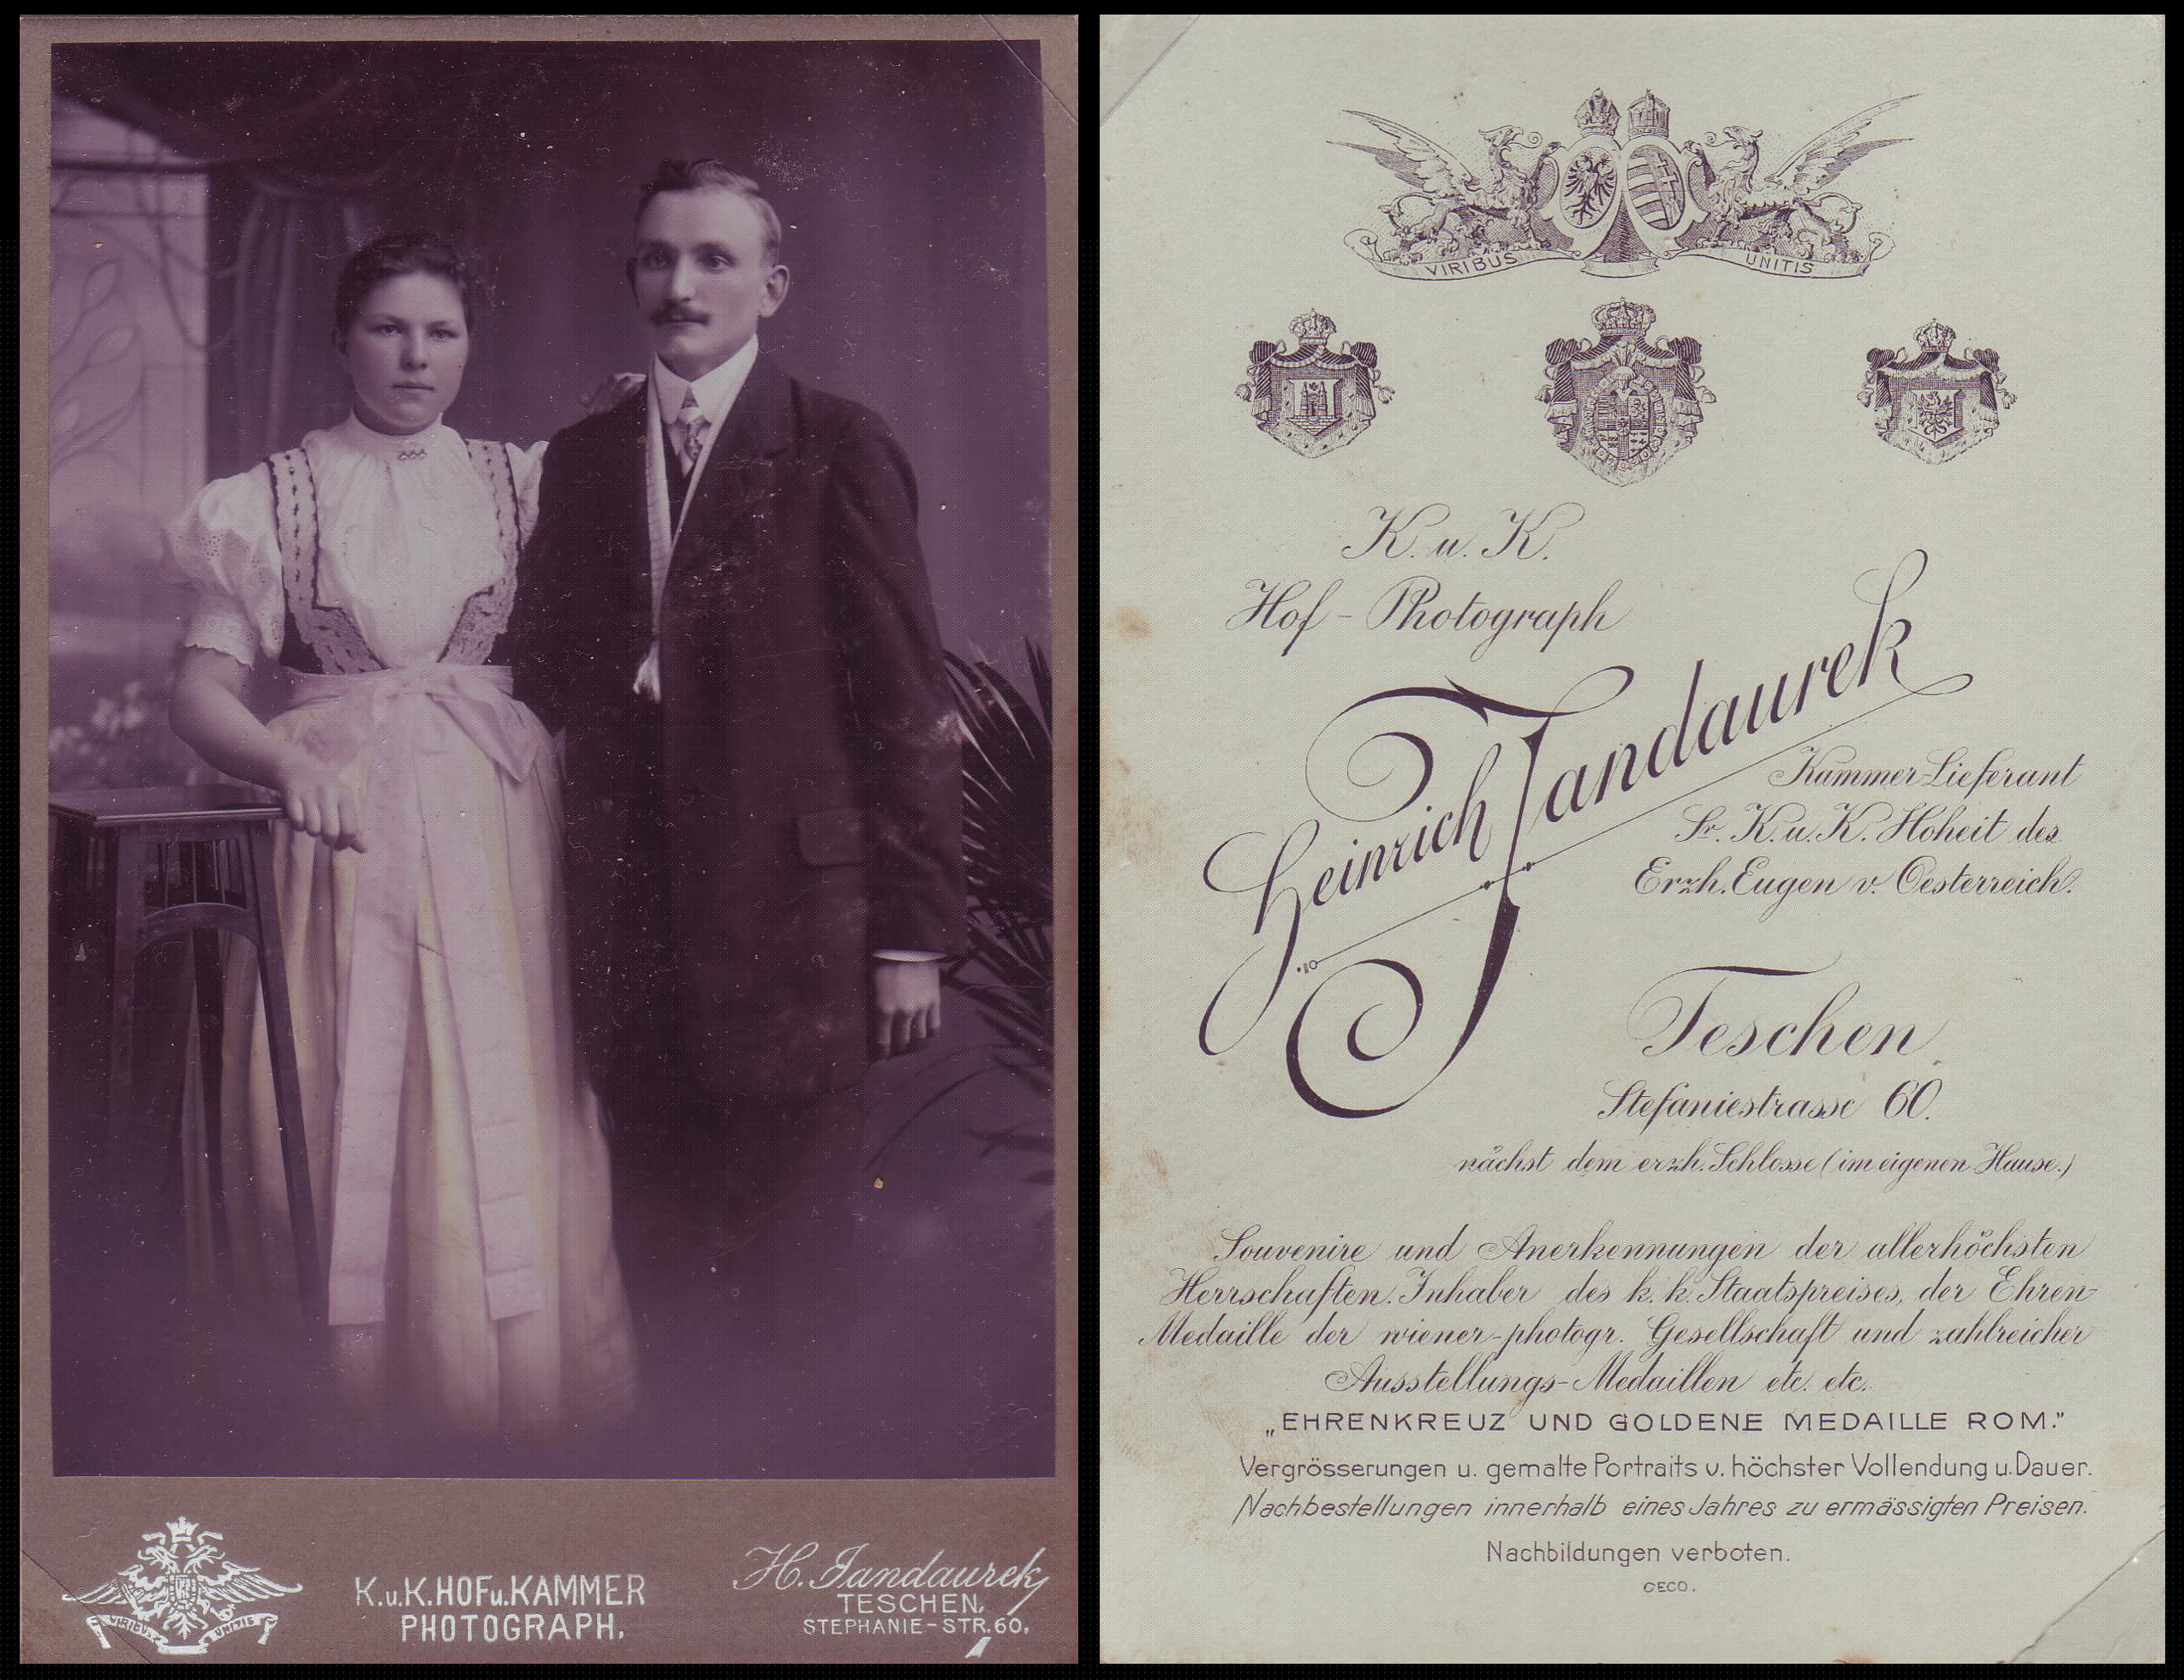 VIRIBUS UNITIS
K.u.K.HOFu.KAMMER
PHOTOGRAPH.
H. Jandaurek,
TESCHEN,
STEPHANIE-STR.60.
VIRIBUS UNITIS
K. u. K.
Hof-Photograph
Heinrich Jandaurek
Kammer-Lieferant
Sr. K. u. K. Hoheit des
Erzh. Eugen v. Oesterreich.
Teschen
Stefaniestrasse 60.
nächst dem erzh. Schlosse (im eigenen Hause.)
Souvenire und Anerkennungen der allerhöchsten
Herrschaften. Inhaber des k. k. Staatspreises, der Ehren-
Medaille der wiener-photogr. Gesellschaft und zahlreicher
Ausstellungs-Medaillen etc. etc.
„EHRENKREUZ UND GOLDENE MEDAILLE ROM."
Vergrösserungen u. gemalte Portraits v. höchster Vollendung u. Dauer.
Nachbestellungen innerhalb eines Jahres zu ermässigten Preisen.
Nachbildungen verboten.
OECO.